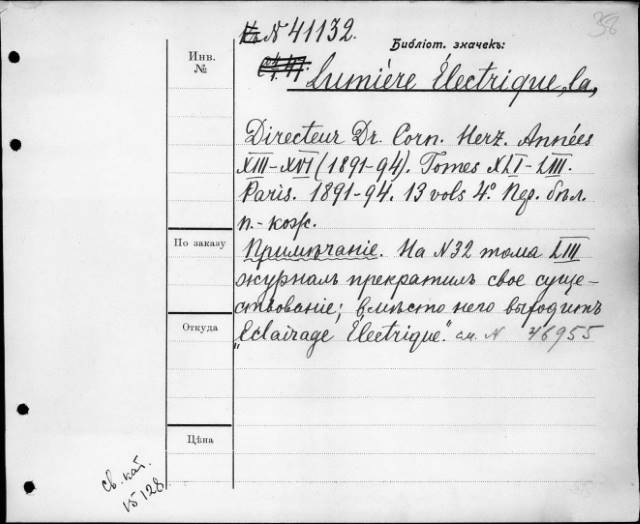 38
N 41132.
Библіот. значекъ:
Инв.
№
Lumière Électrique, la,
Directeur Dr. Corn. Herz. Années
XIII-XVI (1891-94). Tomes XLI-LIII.
Paris. 1891-94. 13 vols 4º Пер. бѣл.
п.-кож.
По заказу
Примѣчаніе. На N32 тома LIII
журналъ прекратилъ свое суще-
ствованіе; вмѣсто него выходитъ
Откуда
„Eclairage Électrique." см. N 46955
Цѣна
св. кат.
15 128